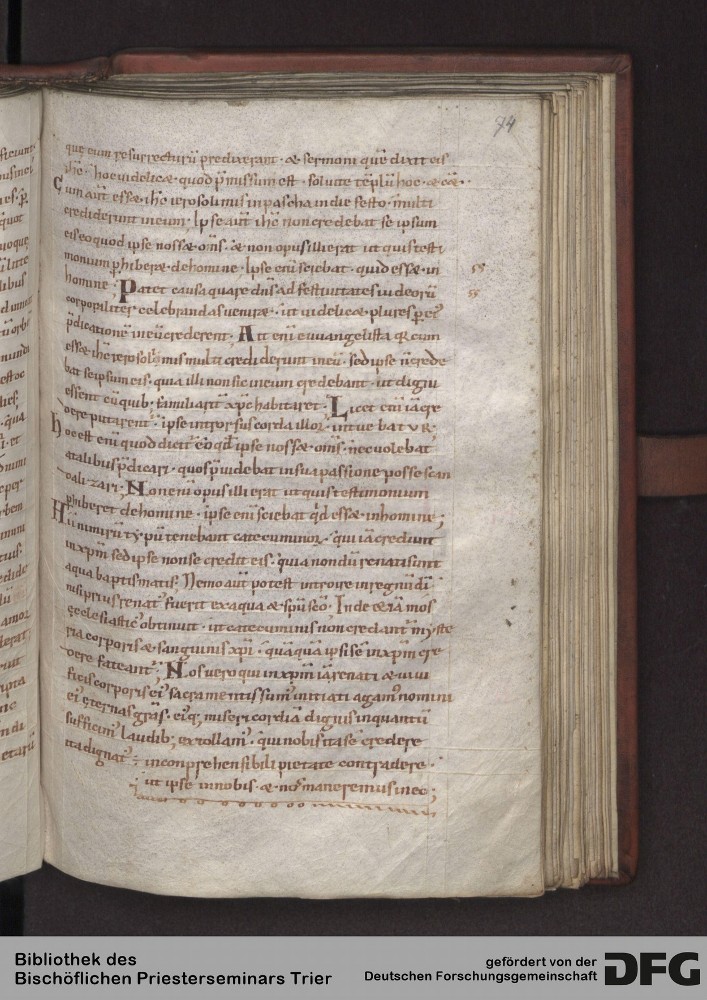 74
que eum resurrecturū predixerant · & sermoni quē dixit eis
ih̄c · hoc videlicet · quod p̄missum est · soluite tēplū hoc · & cǣ ·
Cum aut̄ esset ih̄c ierosolimis in pascha in die festo · multi
crediderunt in eum · Ipse aut̄ ih̄c non credebat se ipsum
eis eo quod ipse nosset om̄s · & non opus illi erat ut quis testi
monium phiberet · de homine · Ipse enī sciebat · quid esset in
homine · Patet causa quare dn̄s ad festiuitates iudeorū
corporaliter celebrandas venir& · ut videlicet plures p ei'
p̄dicationē in eū crederent · Ait enī euuangelista q̄a cum
esset ih̄c ierosolimis multi crediderunt in eū · sed ipse n̄ crede
bat se ipsum eis · quia illi non sic in eum credebant · ut digni
essent cū quib; familiarit̄ xp̄c habitaret · Licet enī iā cre
dere putarent̄ · ipse introrsus corda illoꝝ · intuebat̄ur ·
Hoc est enī quod dicit̄ eo qd̄ ipse nosset om̄s · nec volebat
a talibus p̄dicari · quos p̄uidebat in sua passione posse scan
dalizari · Non enī opus illi erat ut quis testimonium
phiberet de homine · ipse enī sciebat qd̄ esset in homine ;
Hii nimirū typū tenebant catecuminoꝝ · qui iā credunt
in xp̄m sed ipse non se credit eis · quia nondū renati sunt
aqua baptismatis · Nemo aut̄ potest introire in regnū dī
nisi prius renat' fuerit ex aqua & sp̄u sc̄o · Inde & iā mos
ecclesiastic' obtinuit · ut catecuminis non credant̄ myste
ria corporis & sanguinis xp̄i · quāquā ipsi se in xp̄m cre
dere fateant̄ ; Nos vero qui in xp̄m iā renati & uiui
ficis corporis ei' sacramentis sum' initiati agam' nomini
ei' eternas gr̄as · eiq; misericordiā dignis inquantū
sufficim' laudib; extollam' · qui nobis ita se credere
ita dignat̄ · incomprehensibili pietate contradere ·
ut ipse in nobis · & nos maneremus in eo ;
Bibliothek des
Bischöflichen Priesterseminars Trier
gefördert von der
Deutschen Forschungsgemeinschaft
DFG